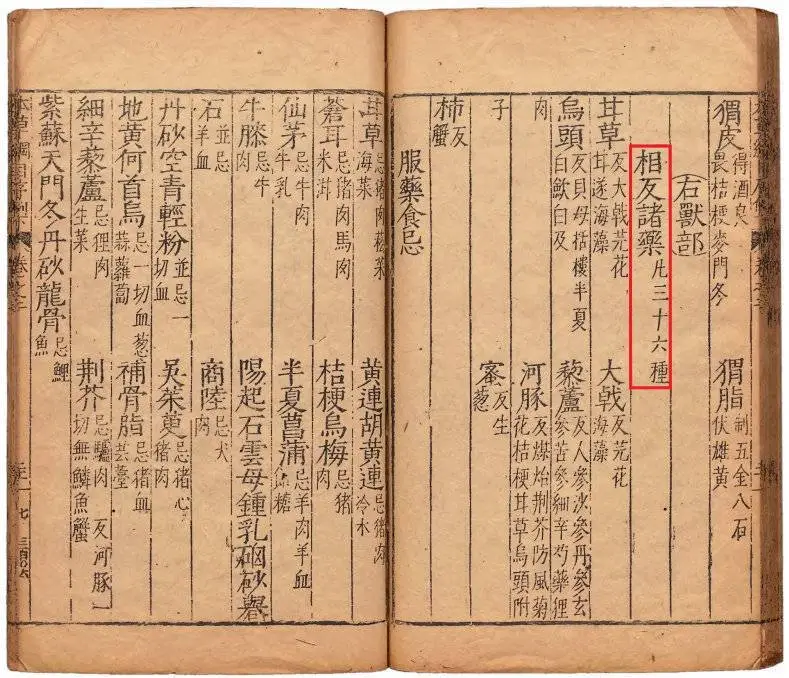 猬皮 得酒良 畏桔梗麥門冬 猬脂 制五金八石 伏雄黄
右獸部
相反諸藥 凡三十六種
甘草 反大戟芫花 甘遂海藻 大戟 反芫花 海藻
烏頭 反貝母栝樓半夏 白斂白及 藜蘆 反人參沙參丹參玄 參苦參細辛芍藥狸
肉 河豚 反煤炲荆芥防風菊 花桔梗甘草烏頭附
子 蜜 反生 葱
柿 反 蟹
服藥食忌
甘草 忌猪肉菘菜 海菜 黄連胡黄連 忌猪肉 冷水
蒼耳 忌猪肉馬肉 米泔 桔梗烏梅 忌猪 肉
仙茅 忌牛肉 牛乳 半夏菖蒲 忌羊肉羊血 飴糖
牛膝 忌牛 肉 陽起石雲母鍾乳硇砂礜
石 並忌 羊血 商陸 忌犬 肉
丹砂空青輕粉 並忌一 切血 吳茱萸 忌猪心 猪肉
地黄何首烏 忌一切血葱 蒜蘿蔔 補骨脂 忌猪血 芸薹
細辛藜蘆 忌狸肉 生菜 荆芥 忌驢肉 反河豚一 切無鱗魚蟹
紫蘇天門冬丹砂龍骨 忌鯉 魚
本草綱目序例 卷之二